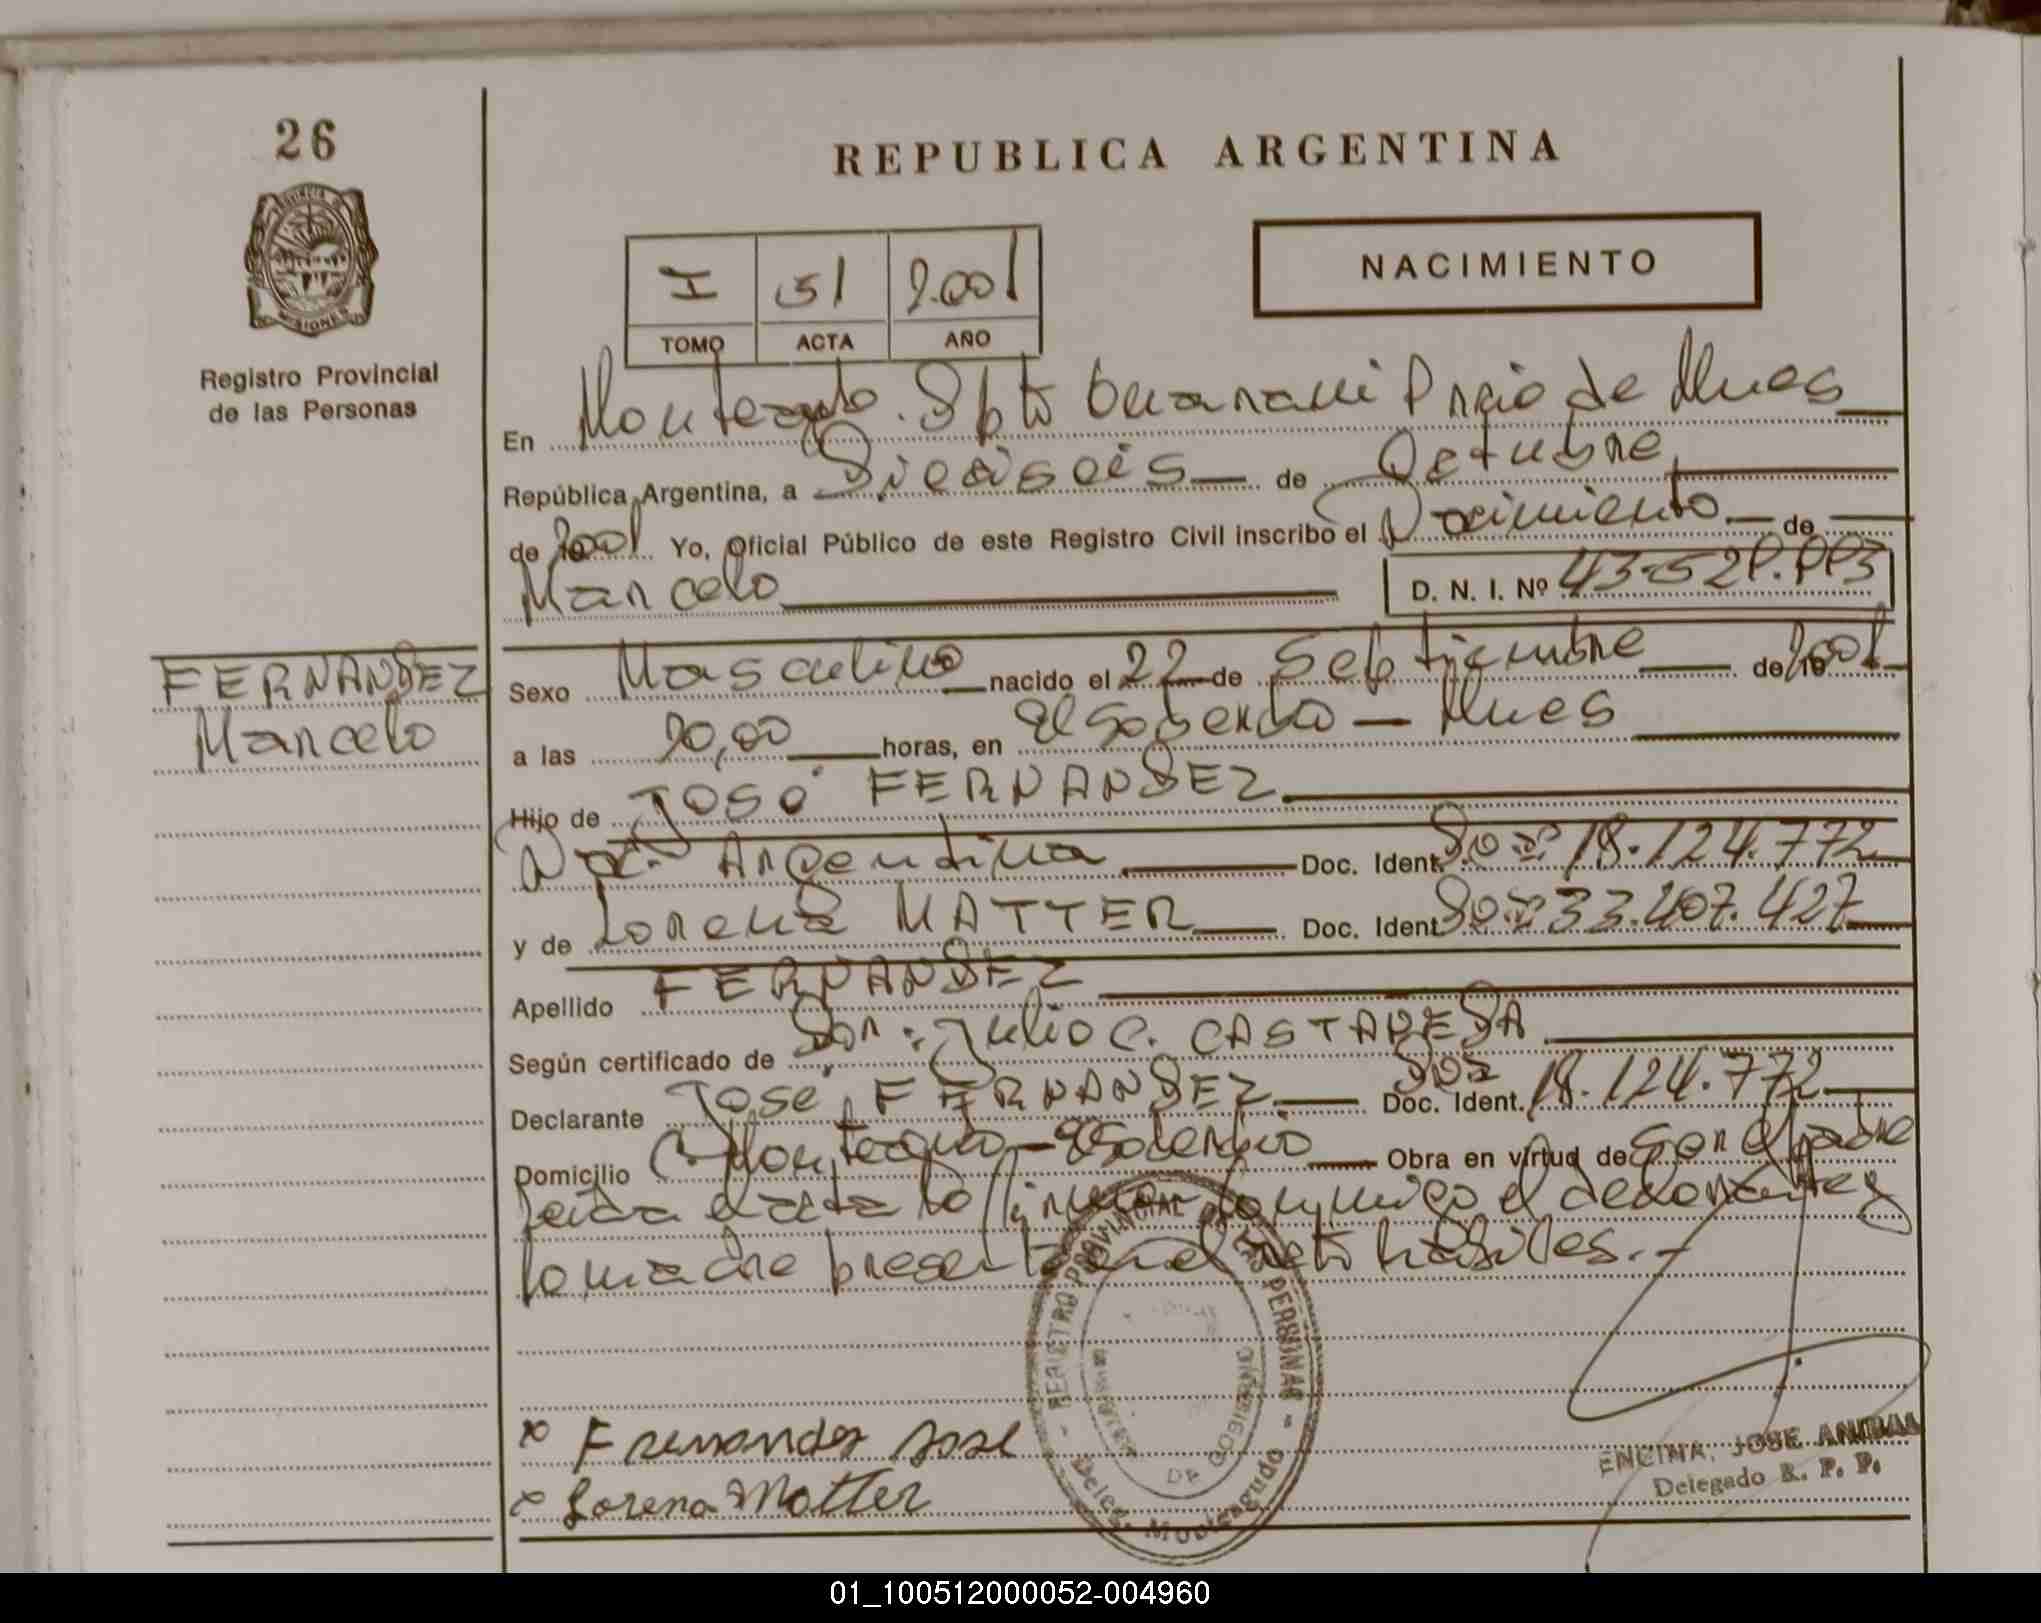 26
REPUBLICA ARGENTINA
NACIMIENTO
I 51 2.001
TOMO ACTA AÑO
PROVINCIA DE
MISIONES
Registro Provincial
de las Personas
En Monteagudo. Dpto Guarani Pncia de Mnes
República Argentina, a Dieciseis de Octubre
de 2001 Yo, Oficial Público de este Registro Civil inscribo el Nacimiento de
Marcelo D. N. I. Nº
FERNANDEZ
Marcelo
Sexo Masculino nacido el 22 de Septiembre de 2001
a las 20,00 horas, en El Soberbio - Mnes
Hijo de José FERNANDEZ
Nac. Argentina Doc. Ident. 18.124.772
y de Lorena MATTER Doc. Ident. 33.407.427
Apellido FERNANDEZ
Según certificado de Julio C. CASTAÑEDA
Declarante José FERNANDEZ Doc. Ident. 18.124.772
Domicilio C. Monteagudo - El Soberbio Obra en virtud de Ser el padre
Leida el acta la firman conmigo el declarante y
la madre presente en el acto habiles.-
REGISTRO PROVINCIAL DE LAS PERSONAS
DE GOBIERNO
Deleg. Monteagudo
x Fernandez Jose
x Lorena Matter
ENCINA, JOSE ANIBAL
Delegado R. P. P.
01_100512000052-004960